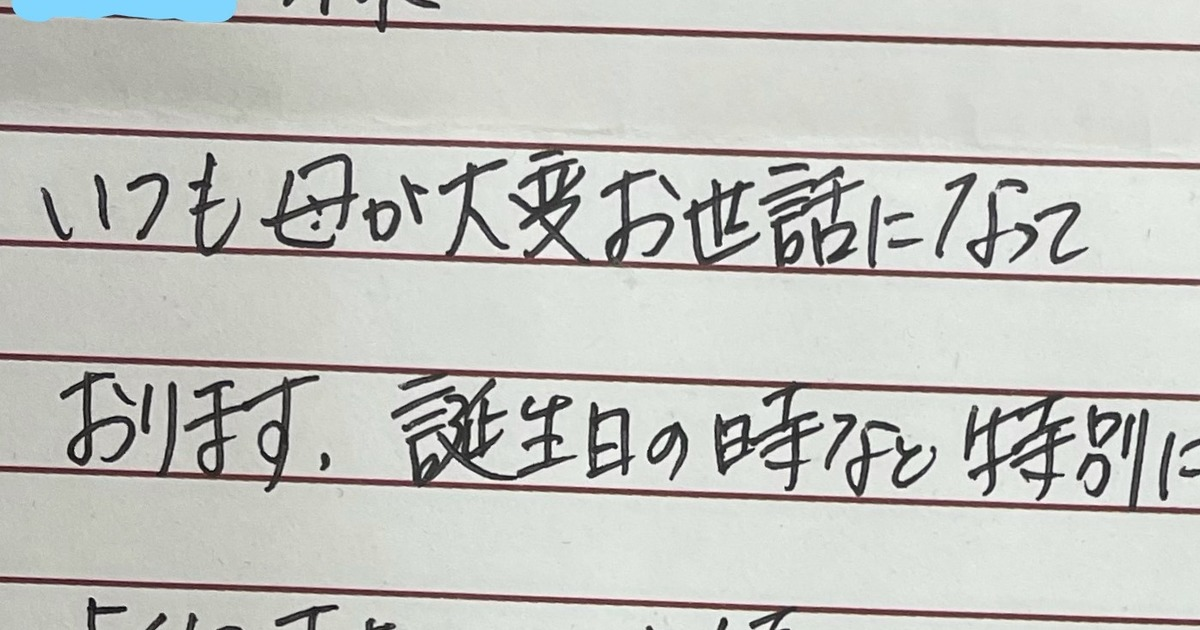 様
いつも母が大変お世話になって
おります. 誕生日の時など特別に